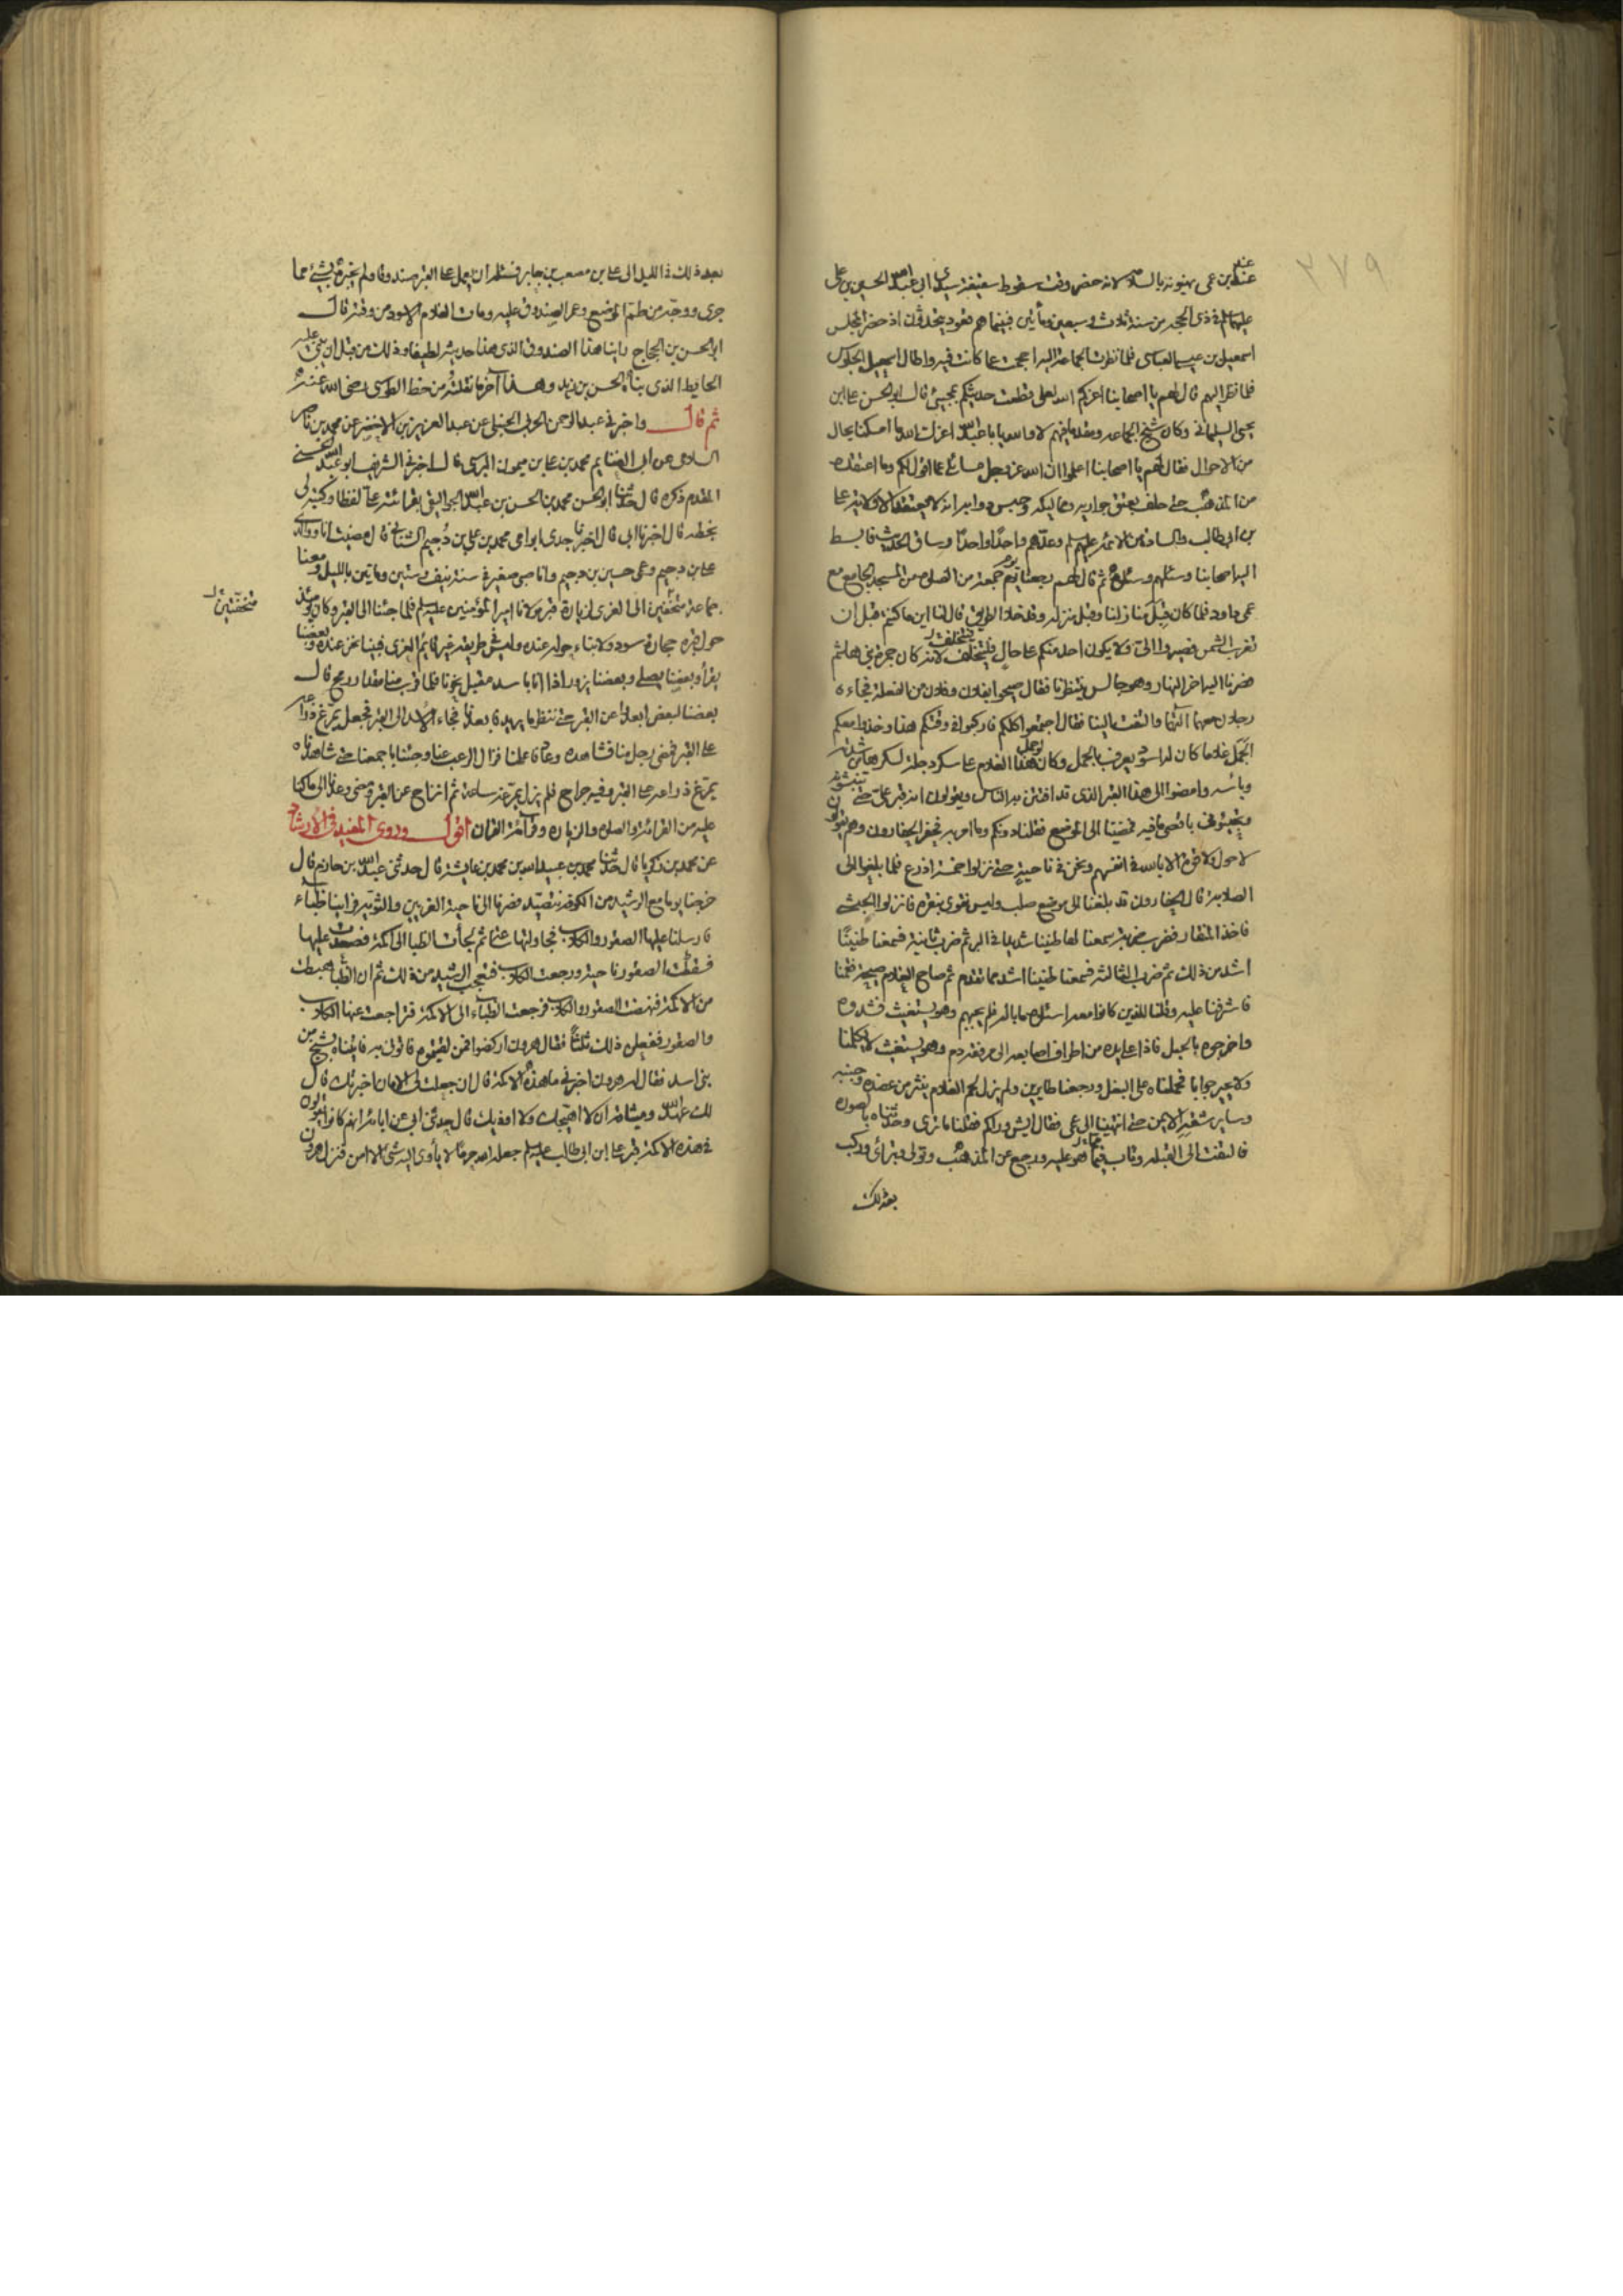 ٣٧٩
عند
عند بن عمى يهنونه بالسلامة لانه حضر وقت سقوط سقيفة سيدى ابى عبد الله الحسين بن على
عليهما السلم فى ذى الحجة من سنة ثلاث وسبعين ومأتين فبينما هم قعود يتحدثون اذ حضر المجلس
اسمعيل بن عيسى العباسى فلما نظرت الجماعة اليه احجمت عما كانت فيه واطال اسمعيل الجلوس
فلما نظر اليهم قال لهم يا اصحابنا اعزكم الله لعلى قطعت حديثكم بمجيئى قال ابو الحسن على بن
يحيى السليمانى وكان شيخ الجماعة ومقدما فيهم لا والله يا ابا عبد الله اعزك الله ما امسكنا بحال
من الاحوال فقال لهم يا اصحابنا اعلموا ان الله عز وجل مسائلى عما اقول لكم وما اعتقده
من المذهب حتى حلف بعتق جواريه ومماليكه وحبس دوابه انه لا يعتقد الا ولاية على
بن ابى طالب والسادة من الائمة عليهم السلم وعدهم واحدا واحدا وساق الحديث فابسط
اليه اصحابنا وسئلهم وسئلوه ثم قال لهم رجعنا يوم جمعة من الصلوة من المسجد الجامع مع
عمى داود فلما كان قبل منازلنا وقبل منزله وقد خلا الطريق قال لنا اين ما كنتم قبل ان
تغرب الشمس فصيروا الى ولا يكون احد منكم على حال فيتخلف لانه كان جمرة بنى هاشم
فصرنا اليه اخر النهار وهو جالس ينتظرنا فقال صيحوا بفلان وفلان من الفعلة فجاءه
رجلان معهما آلتهما والتفت الينا فقال اجتمعوا كلكم فاركبوا فى وقتكم هذا وخذوا معكم
الجمل غلاما كان له اسود يعرف بالجمل وكان هذا الغلام لو حمل على سكر دجلة لسكرها من شدته
وبأسه وامضوا الى هذا القبر الذى قد افتتن به الناس ويقولون انه قبر على حتى تنبشوه
وتجيئونى باقصى ما فيه فمضينا الى الموضع فقلنا دونكم وما امر به فحفر الحفارون وهم يقولون
لا حول ولا قوة الا بالله فى انفسهم ونحن فى ناحية حتى نزلوا خمسة اذرع فلما بلغوا الى
الصلابة قال الحفارون قد بلغنا الى موضع صلب وليس نقوى بنقره فانزلوا الحبشى
فاخذ المنقار فضرب ضربة سمعنا لها طنينا شديدا فى البر ثم ضرب ثانية فسمعنا طنينا
اشد من ذلك ثم ضرب الثالثة فسمعنا طنينا اشد مما تقدم ثم صاح الغلام صيحة فقمنا
فاشرفنا عليه وقلنا للذين كانوا معه اسئلوه ما باله فلم يجبهم وهو يستغيث فشدوه
واخرجوه بالحبل فاذا على يده من اطراف اصابعه الى مرفقه دم وهو يستغيث لا يكلمنا
ولا يحير جوابا فحملناه على البغل ورجعنا طايرين ولم يزل لحم الغلام ينثر من عضده وجنبيه
وساير شقه الايمن حتى انتهينا الى عمى فقال ايش وراكم فقلنا ما ترى وحدثناه بالصورة
فالتفت الى القبلة وتاب مما هو عليه ورجع عن المذهب وتولى وتبرأى وركب
بعد ذلك
بعد ذلك فى الليل الى على بن مصعب بن جابر فسئله ان يعمل على القبر صندوقا ولم يخبره بشئ مما
جرى ووجه من طم الموضع وعمر الصندوق عليه ومات الغلام الاسود من وقته قال
ابو الحسن بن الحجاج راينا هذا الصندوق الذى هذا حديثه لطيفا وذلك من قبل ان يبنى عليه
الحايط الذى بناه الحسن بن زيد وهذا آخر ما نقلته من خط الطوسى رضى الله عنه
ثم قال واخبرنى عبد الرحمن الحربى الحنبلى عن عبد العزيز بن الاخضر عن محمد بن ناصر
السلامى عن ابى الغنايم محمد بن على بن ميمون البرسى قال اخبرنى الشريف ابو عبد الله الحسنى
المقدم ذكره قال حدثنا ابو الحسن محمد بن الحسن بن عبد الله الجواليقى بقرائته على لفظا وكتبه لى
بخطه قال اخبرنا ابى قال اخبرنا جدى ابو امى محمد بن على بن دحيم الشيبانى قال مضيت انا ووالدى
على بن دحيم وعمى حسين بن دحيم وانا صبى صغير فى سنة نيف وستين ومأتين بالليل ومعنا
جماعة متخفين الى الغرى لزيارة قبر مولانا امير المؤمنين عليه السلم فلما جئنا الى القبر وكان يومئذ
متخفين
حول قبره حجارة سود ولا بناء حوله عنده وليس فى طريقه غير قايم الغرى فبينا نحن عنده وبعضنا
يقرأ وبعضنا يصلى وبعضنا يزور اذا انا باسد مقبل نحونا فلما قرب منا مقدار رمح قال
بعضنا لبعض ابعدوا عن القبر حتى ننظر ما يريد فابعدنا فجاء الاسد الى القبر فجعل يمرغ ذراعه
على القبر فمضى رجل منا فشاهده وعاد فاعلمنا فزال الرعب عنا وجئنا باجمعنا حتى شاهدناه
يمرغ ذراعه على القبر وفيه جراح فلم يزل يمرغه ساعة ثم انزاح عن القبر ومضى وعدنا الى ما كنا
عليه من القرائة والصلوة والزيارة وقرآئة القران اقول وروى المفيد فى الارشاد
عن محمد بن زكريا قال حدثنا محمد بن عبيد الله بن محمد بن عايشة قال حدثنى عبد الله بن حازم قال
خرجنا يوما مع الرشيد من الكوفة نتصيد فصرنا الى ناحية الغريين والثوية فراينا ظباء
فارسلنا عليها الصقور والكلاب فجاولتها ساعة ثم لجأت الظبا الى اكمة فصعدت عليها
فسقطت الصقور ناحية ورجعت الكلاب فتعجب الرشيد من ذلك ثم ان الظباء هبطت
من الاكمة فهبطت الصقور والكلاب فرجعت الظباء الى الاكمة فتراجعت عنها الكلاب
والصقور ففعلن ذلك ثلثا فقال هرون اركضوا فمن لقيتموه فاتونى به فاتيناه بشيخ من
بنى اسد فقال له هرون اخبرنى ما هذه الاكمة قال ان جعلت لى الامان اخبرتك قال
لك عهد الله وميثاقه ان لا اهيجك ولا اوذيك قال حدثنى ابى عن ابائه انهم كانوا يقولون
فى هذه الاكمة قبر على ابن ابى طالب عليه السلم جعله الله حرما لا يأوى اليه شئ الا امن فنزل هرون